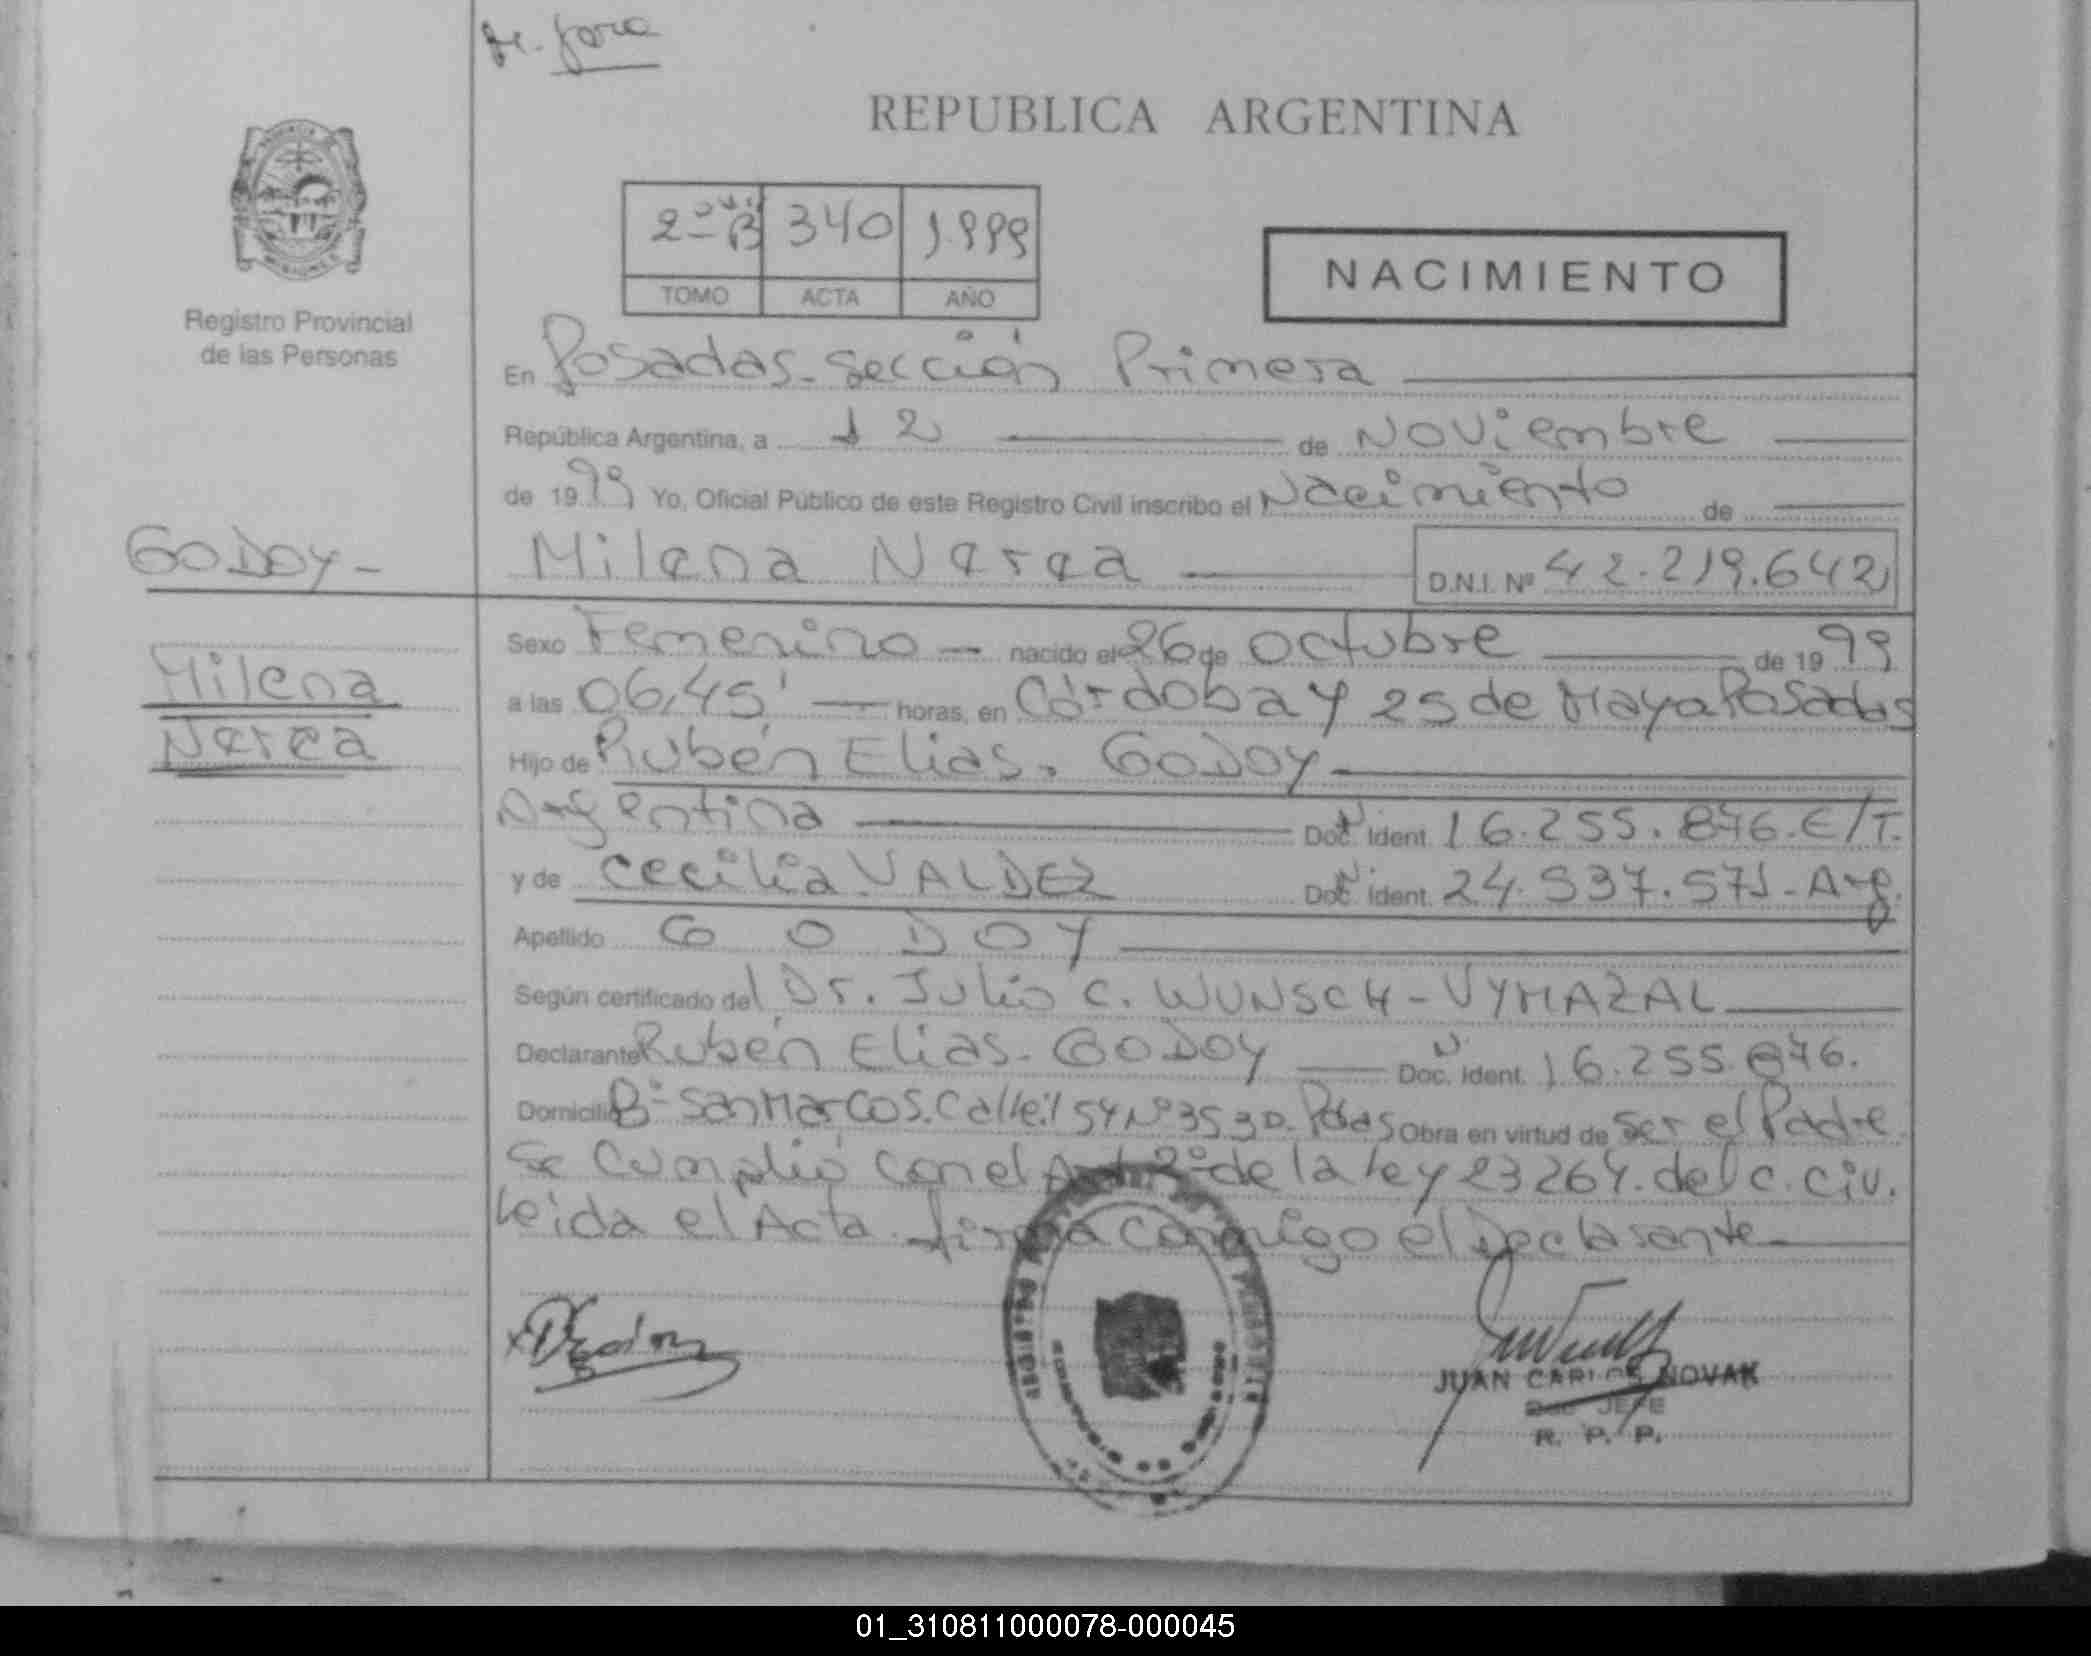 REPUBLICA ARGENTINA
340 1.999
TOMO ACTA AÑO
NACIMIENTO
Registro Provincial
de las Personas
En Posadas. Sección Primera
República Argentina, a 12 de Noviembre
de 1999 Yo, Oficial Público de este Registro Civil inscribo el Nacimiento de
GODOY - Milena Nerea D.N.I. Nº 42.219.642
Sexo Femenino nacido el 26 de Octubre de 1999
Milena
a las 06,45' horas, en Córdoba y 25 de Mayo Posadas
Nerea
Hijo de Rubén Elias. GODOY
Argentina Doc. Ident. 16.255.876. E/T.
y de Cecilia VALDEZ Doc. Ident. 24.537.571 - Arg.
Apellido GODOY
Según certificado del Dr. Julio C. WUNSCH - VYMAZAL
Declarante Rubén Elias. GODOY Doc. Ident. 16.255.876.
Domicilio Bº San Marcos. Calle 154 Nº 3530. Pdas Obra en virtud de ser el Padre
Se Cumplió con el Art 2º de la Ley 23264. del C. Civ.
Leida el Acta firma conmigo el Declarante
JUAN CARLOS NOVAK
JEFE
R. P. P.
01_310811000078-000045